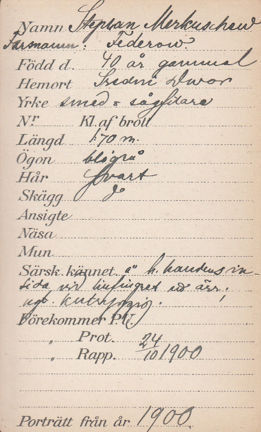 Namn Stephan Merkuschew
Farmann: Federow.
Född d. 40 år gammal
Hemort Sredni Dwor
Yrke smed o sågfilare
Nr Kl. af brott
Längd 1.70 m.
Ögon blågrå
Hår svart
Skägg do
Ansigte
Näsa
Mun
Särsk. kännet. å h. handens in-
sida, vid lillfingret ett ärr;
Förekommer PU.
" Prot. 24
" Rapp. /10 1900
Porträtt från år 1900.